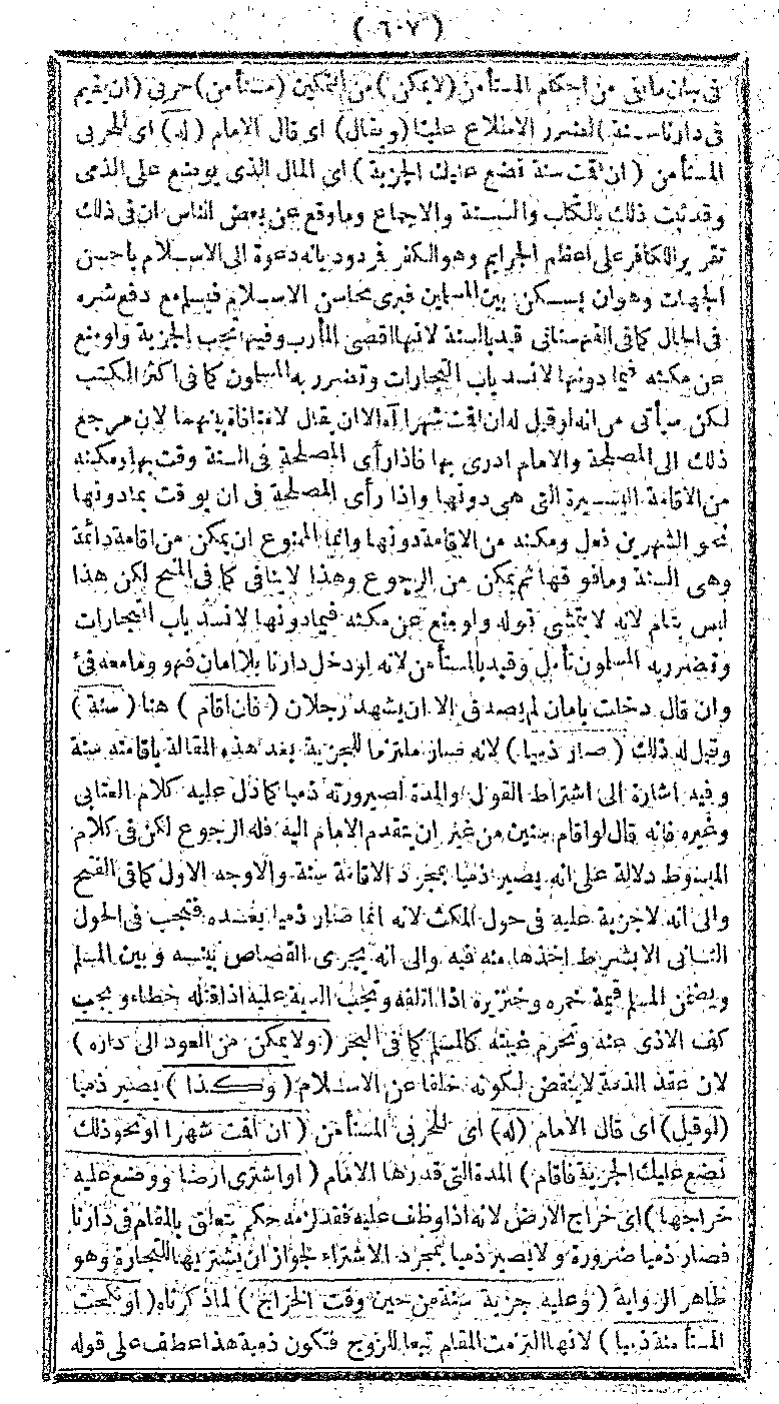 ( ٦٠٧ )
فى بيان مابقى من احكام المستأمن (لايمكن) من التمكين (مستأمن) حربى (ان يقيم
فى دارنا سنة) لتضرر الاطلاع علينا (ويقال) اى قال الامام (له) اى للحربى
المستأمن (ان اقت سنة نضع عليك الجزية) اى المال الذى يوضع على الذمى
وقد ثبت ذلك بالكتاب والسنة والاجماع وماوقع عن بعض الناس ان فى ذلك
تقرير الكافر على اعظم الجرايم وهو الكفر فردود بانه دعوة الى الاسلام باحسن
الجهات وهو ان يسكن بين المسلين فيرى محاسن الاسلام فيسلم مع دفع شره
فى الحال كما فى القهستانى قيد بالسنة لانها اقصى المأرب وفيها تجب الجزية ولومنع
عن مكثه فيما دونها لانسد باب التجارات وتضرر به المسلون كما فى اكثر الكتب
لكن سيأتى من انه لوقيل له ان اقت شهرا آه الا ان يقال لامنافاة بينهما لان مرجع
ذلك الى المصلحة والامام ادرى بها فاذا رأى المصلحة فى السنة وقت بها ومكنه
من الاقامة اليسيرة التى هى دونها واذا رأى المصلحة فى ان يوقت بمادونها
نحو الشهرين فعل ومكنه من الاقامة دونها وانما الممنوع ان يمكن من اقامة دائمة
وهى السنة ومافوقها ثم يمكن من الرجوع وهذا لاينافى كما فى المنح لكن هذا
ليس بتام لانه لايتمشى قوله ولومنع عن مكثه فيمادونها لانسد باب التجارات
وتضرر به المسلون تأمل وقيد بالمستأمن لانه لودخل دارنا بلاامان فهو ومامعه فئ
وان قال دخلت بامان لم يصدق الا ان يشهد رجلان (فان اقام) هنا (سنة)
وقيل له ذلك (صار ذميا) لانه صار ملتزما للجزية بعد هذه المقالة باقامته سنة
وفيه اشارة الى اشتراط القول والمدة لصيرورته ذميا كما دل عليه كلام العتابى
وغيره فانه قال لواقام سنين من غير ان يتقدم الامام اليه فله الرجوع لكن فى كلام
المبسوط دلالة على انه يصير ذميا بمجرد الاقامة سنة والاوجه الاول كما فى الفتح
والى انه لاجزية عليه فى حول المكث لانه انما صار ذميا بعده فتجب فى الحول
الثانى الابشرط اخذها منه فيه والى انه يجرى القصاص بينه وبين المسلم
ويضمن المسلم قيمة خمره وخنزيره اذا اتلفه وتجب الدية عليه اذا قتله خطاء ويجب
كف الاذى عنه وتحرم غيبته كالمسلم كما فى البحر (ولايمكن من العود الى داره)
لان عقد الذمة لاينقض لكونه خلفا عن الاسلام (وكذا) يصير ذميا
(لوقيل) اى قال الامام (له) اى للحربى المستأمن (ان اقت شهرا اونحوذلك
نضع عليك الجزية فاقام) المدة التى قدرها الامام (اواشترى ارضا ووضع عليه
خراجها) اى خراج الارض لانه اذا وظف عليه فقد لزمه حكم يتعلق بالمقام فى دارنا
فصار ذميا ضرورة ولايصير ذميا بمجرد الاشتراء لجواز ان يشتريها للتجارة وهو
ظاهر الرواية (وعليه جزية سنة من حين وقت الخراج) لماذكرناه (اونكحت
المستأمنة ذميا) لانها التزمت المقام تبعا للزوج فتكون ذمية هذا عطف على قوله